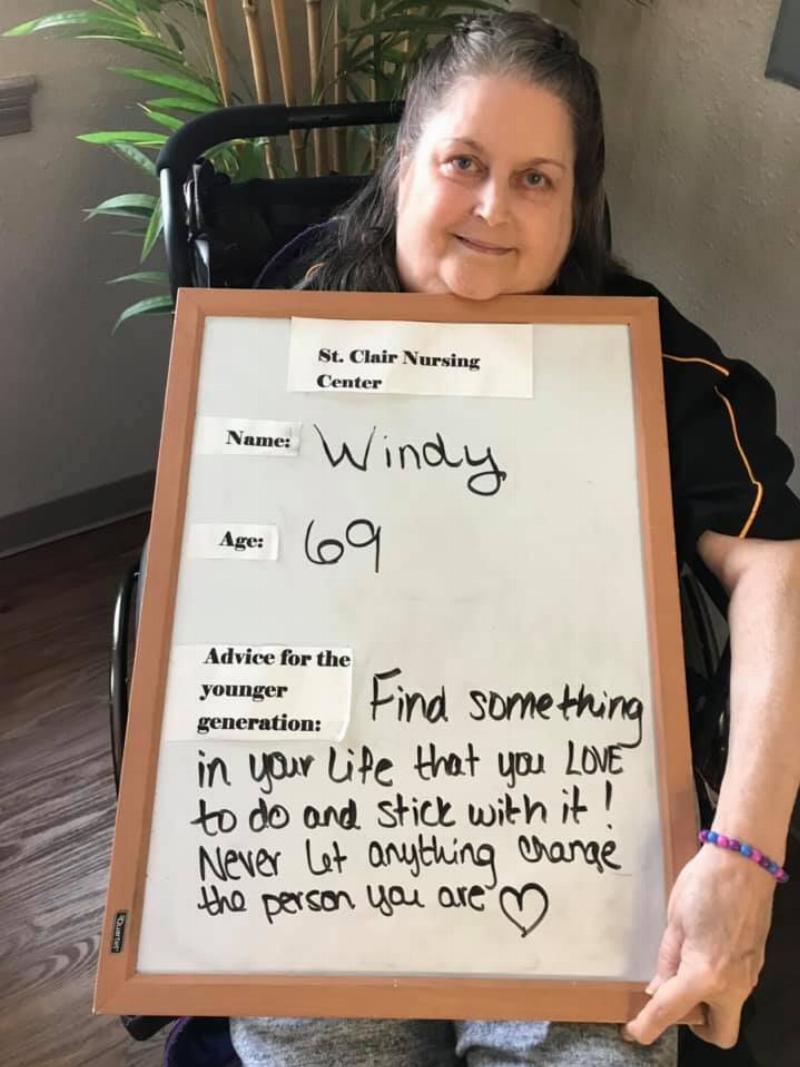 St. Clair Nursing
Center
Name: Windy
Age: 69
Advice for the
younger
generation: Find something
in your Life that you LOVE
to do and stick with it!
Never let anything change
the person you are ♡
Quartet